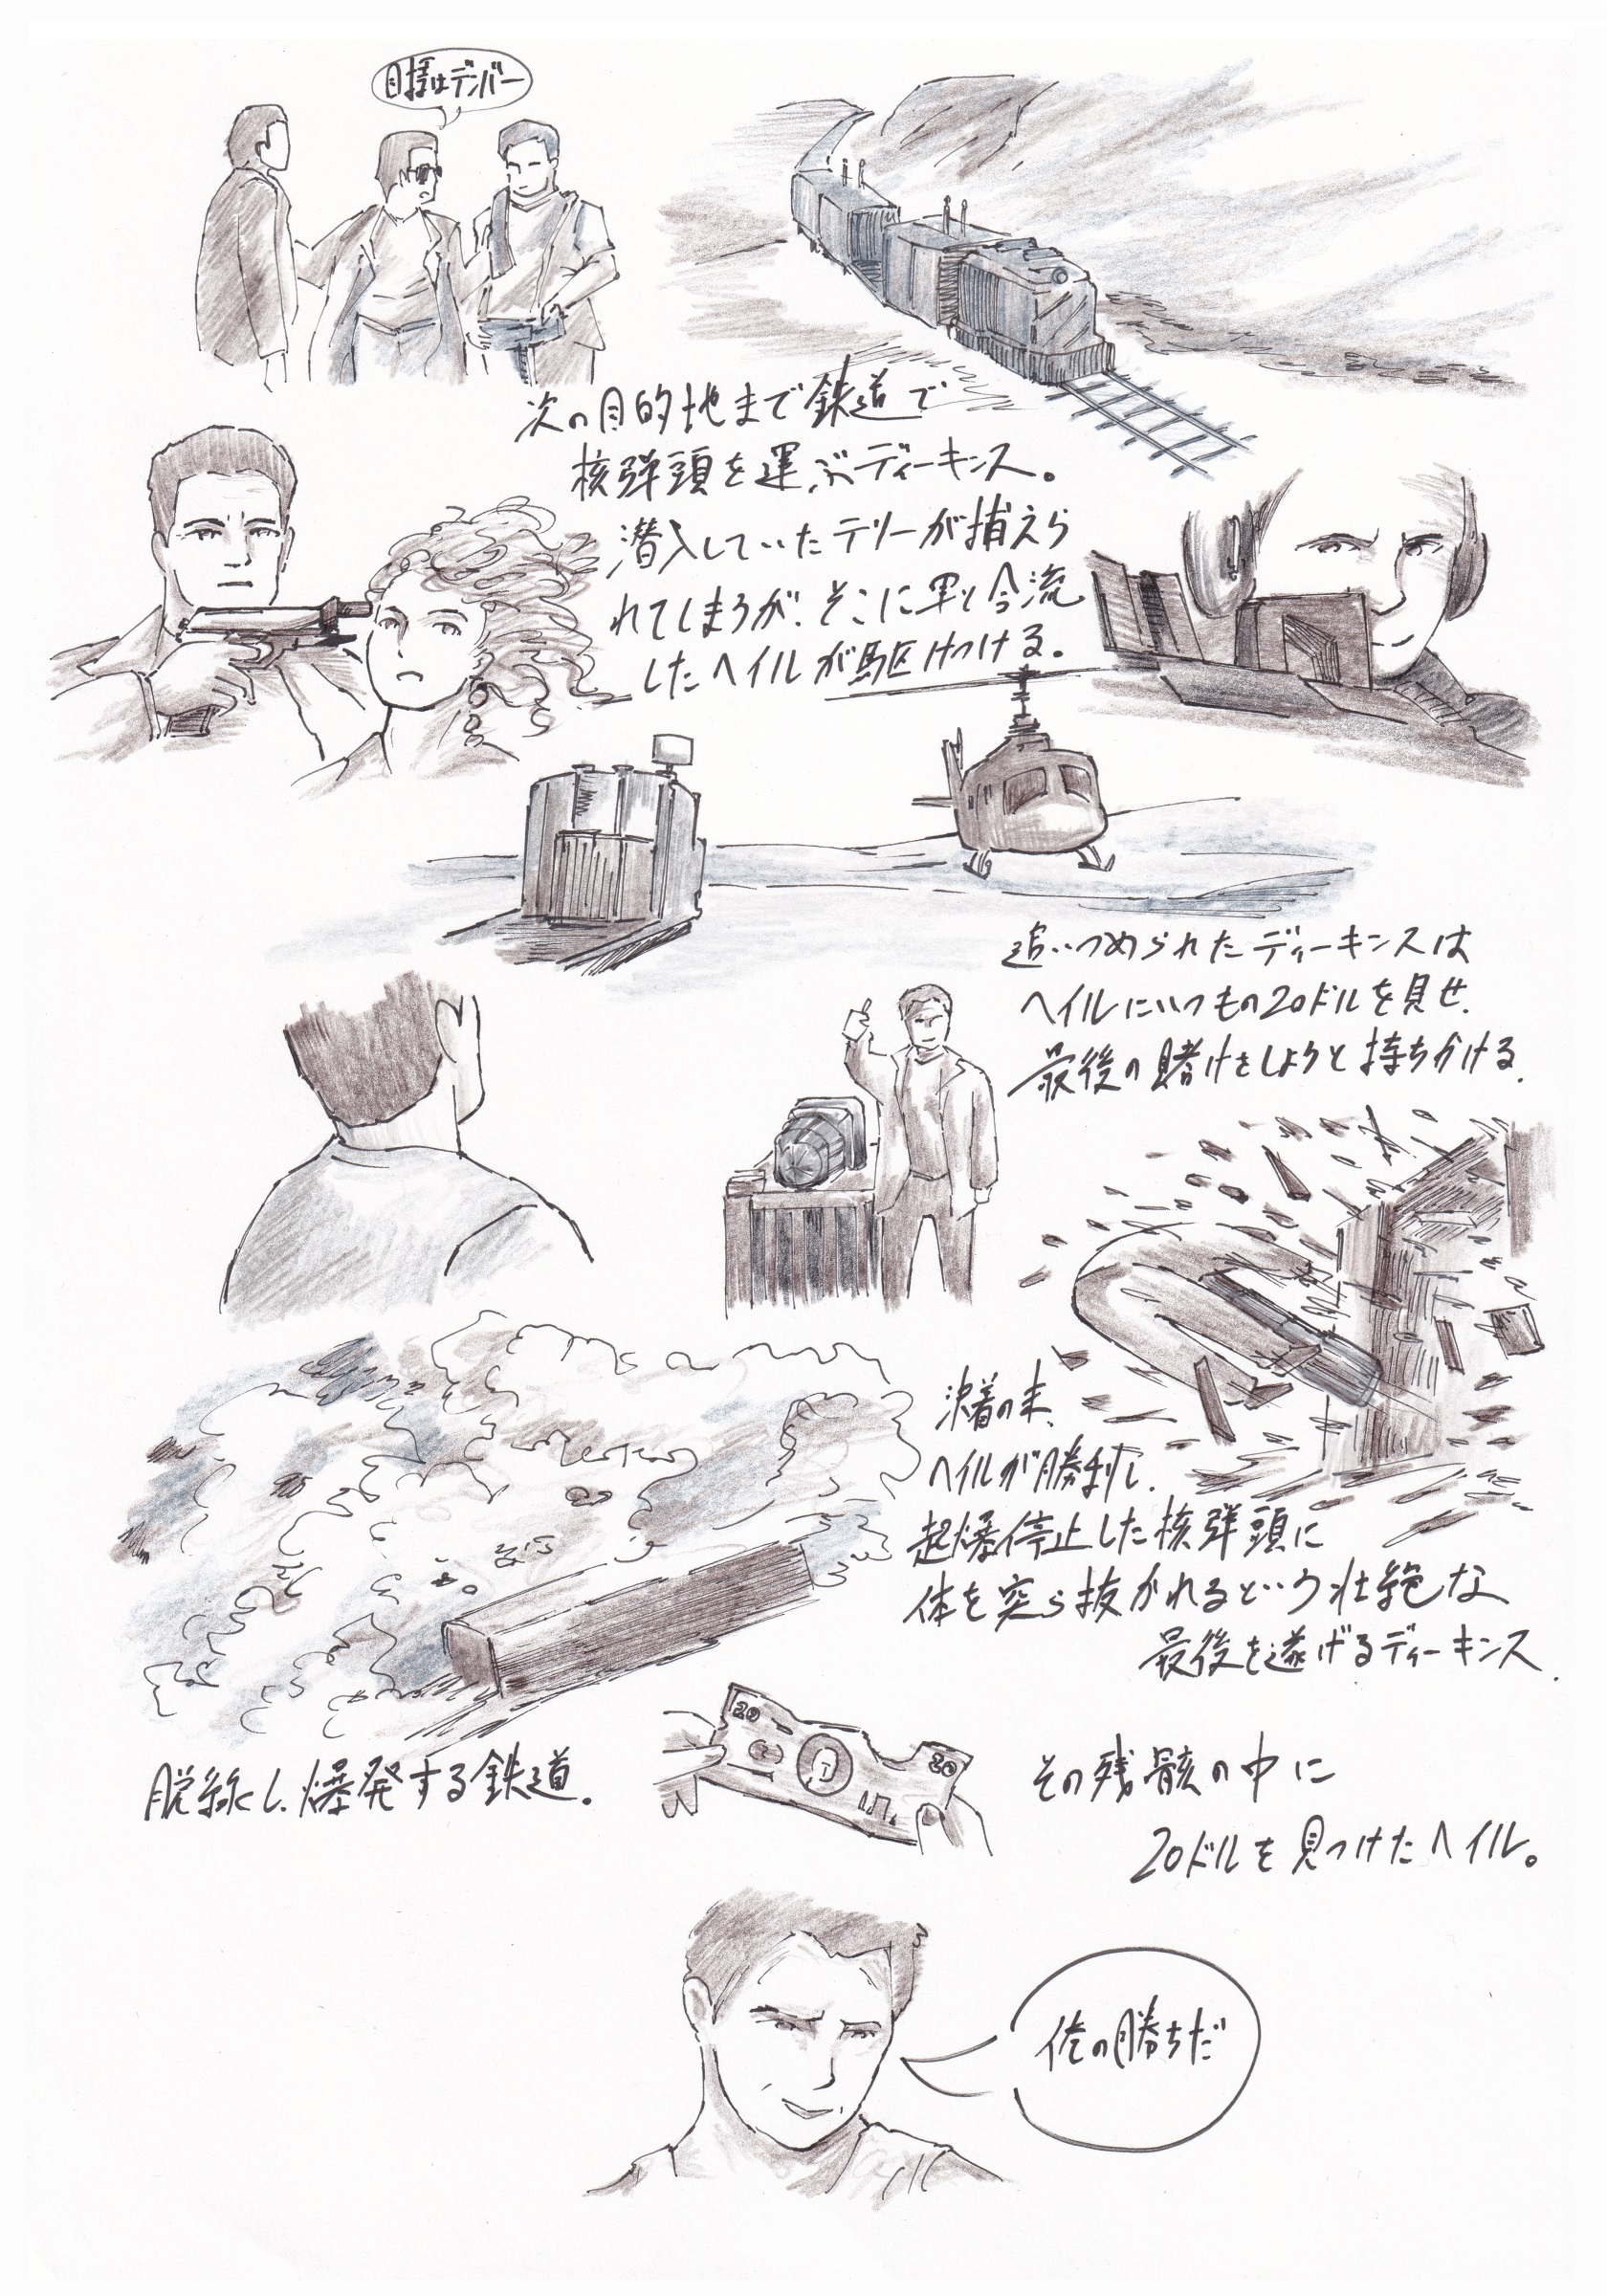 目標はデンバー
次の目的地まで鉄道で
核弾頭を運ぶディーキンス。
潜入していたテリーが捕えら
れてしまうが、そこに軍と合流
したヘイルが駆けつける。
追いつめられたディーキンスは
ヘイルにいつもの20ドルを見せ、
最後の賭けをしようと持ちかける。
決着の末、
ヘイルが勝利し、
起爆停止した核弾頭に
体を突ら抜かれるという壮絶な
最後を遂げるディーキンス。
脱線し、爆発する鉄道。
20
20
その残骸の中に
20ドルを見つけたヘイル。
俺の勝ちだ